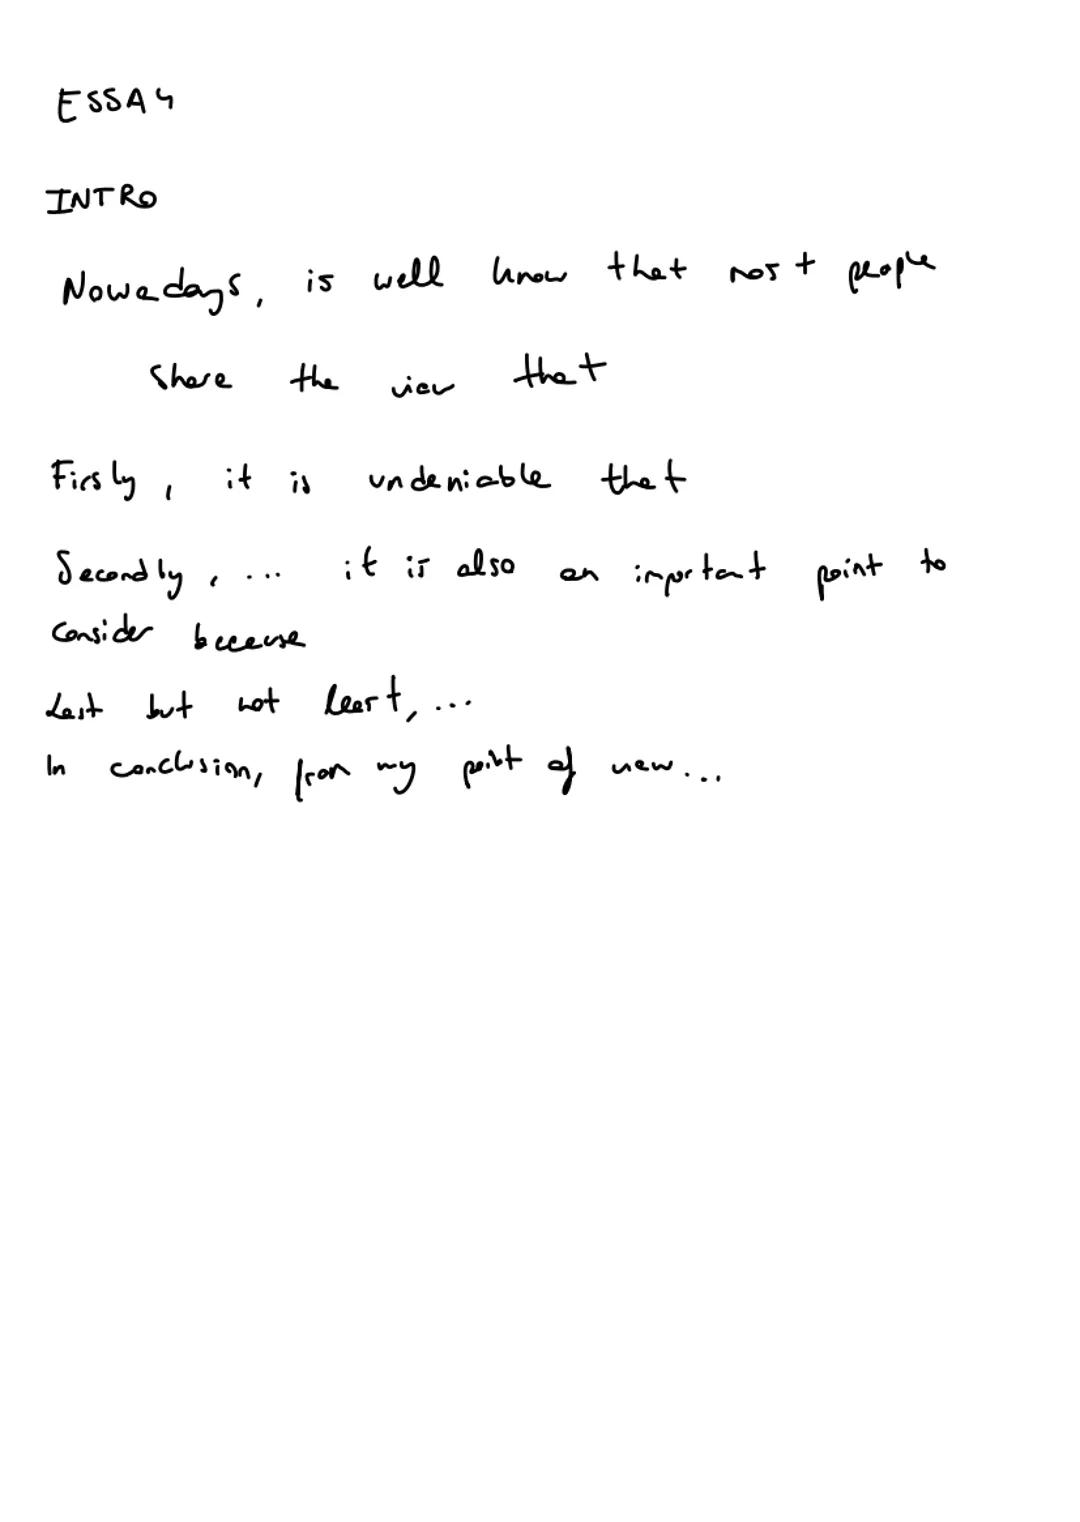 ESSAY
INTRO
Nowadays, is well know that most people
share the view that
Firsly, it is undeniable that
Secondly, ... it is also an important point to
consider because
Last but not least, ...
In conclusion, from my point of view...